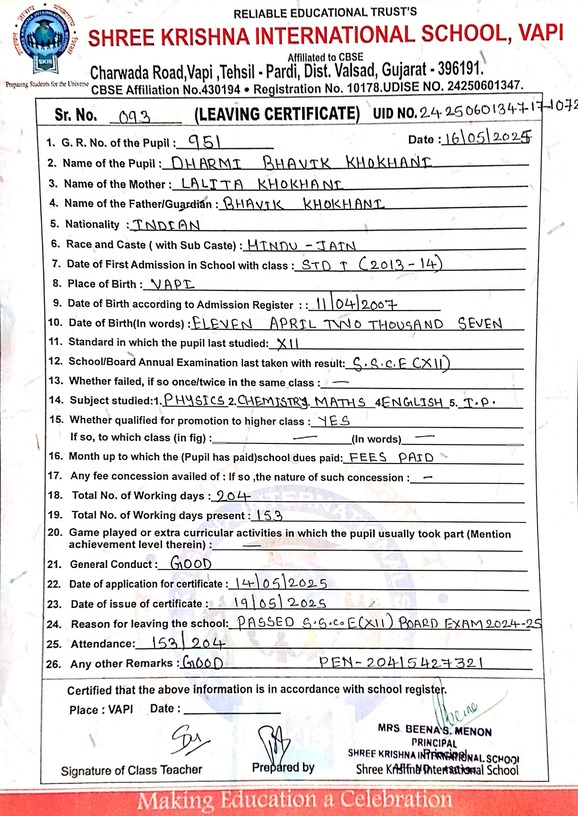 RELIABLE EDUCATIONAL TRUST'S
SHREE KRISHNA INTERNATIONAL SCHOOL, VAPI
Affiliated to CBSE
Charwada Road,Vapi ,Tehsil - Pardi, Dist. Valsad, Gujarat - 396191.
CBSE Affiliation No.430194 • Registration No. 10178.UDISE NO. 24250601347.
SKIS
Preparing Students for the Universe
Sr. No. 093 (LEAVING CERTIFICATE) UID NO. 24250601347-17-1072
1. G. R. No. of the Pupil : 951 Date : 16/05/2025
2. Name of the Pupil : DHARMI BHAVIK KHOKHANI
3. Name of the Mother : LALITA KHOKHANI
4. Name of the Father/Guardian : BHAVIK KHOKHANI
5. Nationality : INDIAN
6. Race and Caste ( with Sub Caste) : HINDU - JAIN
7. Date of First Admission in School with class : STD I (2013-14)
8. Place of Birth : VAPI
9. Date of Birth according to Admission Register : : 11/04/2007
10. Date of Birth(In words) : ELEVEN APRIL TWO THOUSAND SEVEN
11. Standard in which the pupil last studied: XII
12. School/Board Annual Examination last taken with result: S.S.C.E (XII)
13. Whether failed, if so once/twice in the same class : —
14. Subject studied:1. PHYSICS 2. CHEMISTRY 3. MATHS 4 ENGLISH 5. I.P.
15. Whether qualified for promotion to higher class : YES
If so, to which class (in fig) : — (In words) —
16. Month up to which the (Pupil has paid)school dues paid: FEES PAID
17. Any fee concession availed of : If so ,the nature of such concession : —
18. Total No. of Working days : 204
19. Total No. of Working days present : 153
20. Game played or extra curricular activities in which the pupil usually took part (Mention
achievement level therein) : —
21. General Conduct : GOOD
22. Date of application for certificate : 14/05/2025
23. Date of issue of certificate : 19/05/2025
24. Reason for leaving the school: PASSED S.S.C.E(XII) BOARD EXAM 2024-25
25. Attendance: 153/204
26. Any other Remarks : GOOD PEN- 20415427321
Certified that the above information is in accordance with school register.
Place : VAPI Date :
MRS. BEENA S. MENON
PRINCIPAL
SHREE KRISHNA INTERNATIONAL SCHOOL
Principal
Signature of Class Teacher Prepared by Shree Krishna International School
Making Education a Celebration